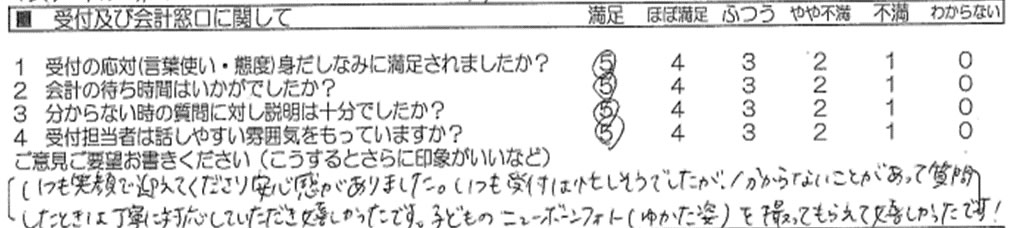 ■ 受付及び会計窓口に関して 満足 ほぼ満足 ふつう やや不満 不満 わからない
1 受付の応対(言葉使い・態度)身だしなみに満足されましたか? 5 4 3 2 1 0
2 会計の待ち時間はいかがでしたか? 5 4 3 2 1 0
3 分からない時の質問に対し説明は十分でしたか? 5 4 3 2 1 0
4 受付担当者は話しやすい雰囲気をもっていますか? 5 4 3 2 1 0
ご意見ご要望お書きください(こうするとさらに印象がいいなど)
いつも笑顔で迎えてくださり安心感がありました。いつも受付は忙しそうでしたが、分からないことがあって質問
したときは丁寧に対応していただき嬉しかったです。子どものニューボーンフォト(ゆかた姿)を撮ってもらえて嬉しかったです!